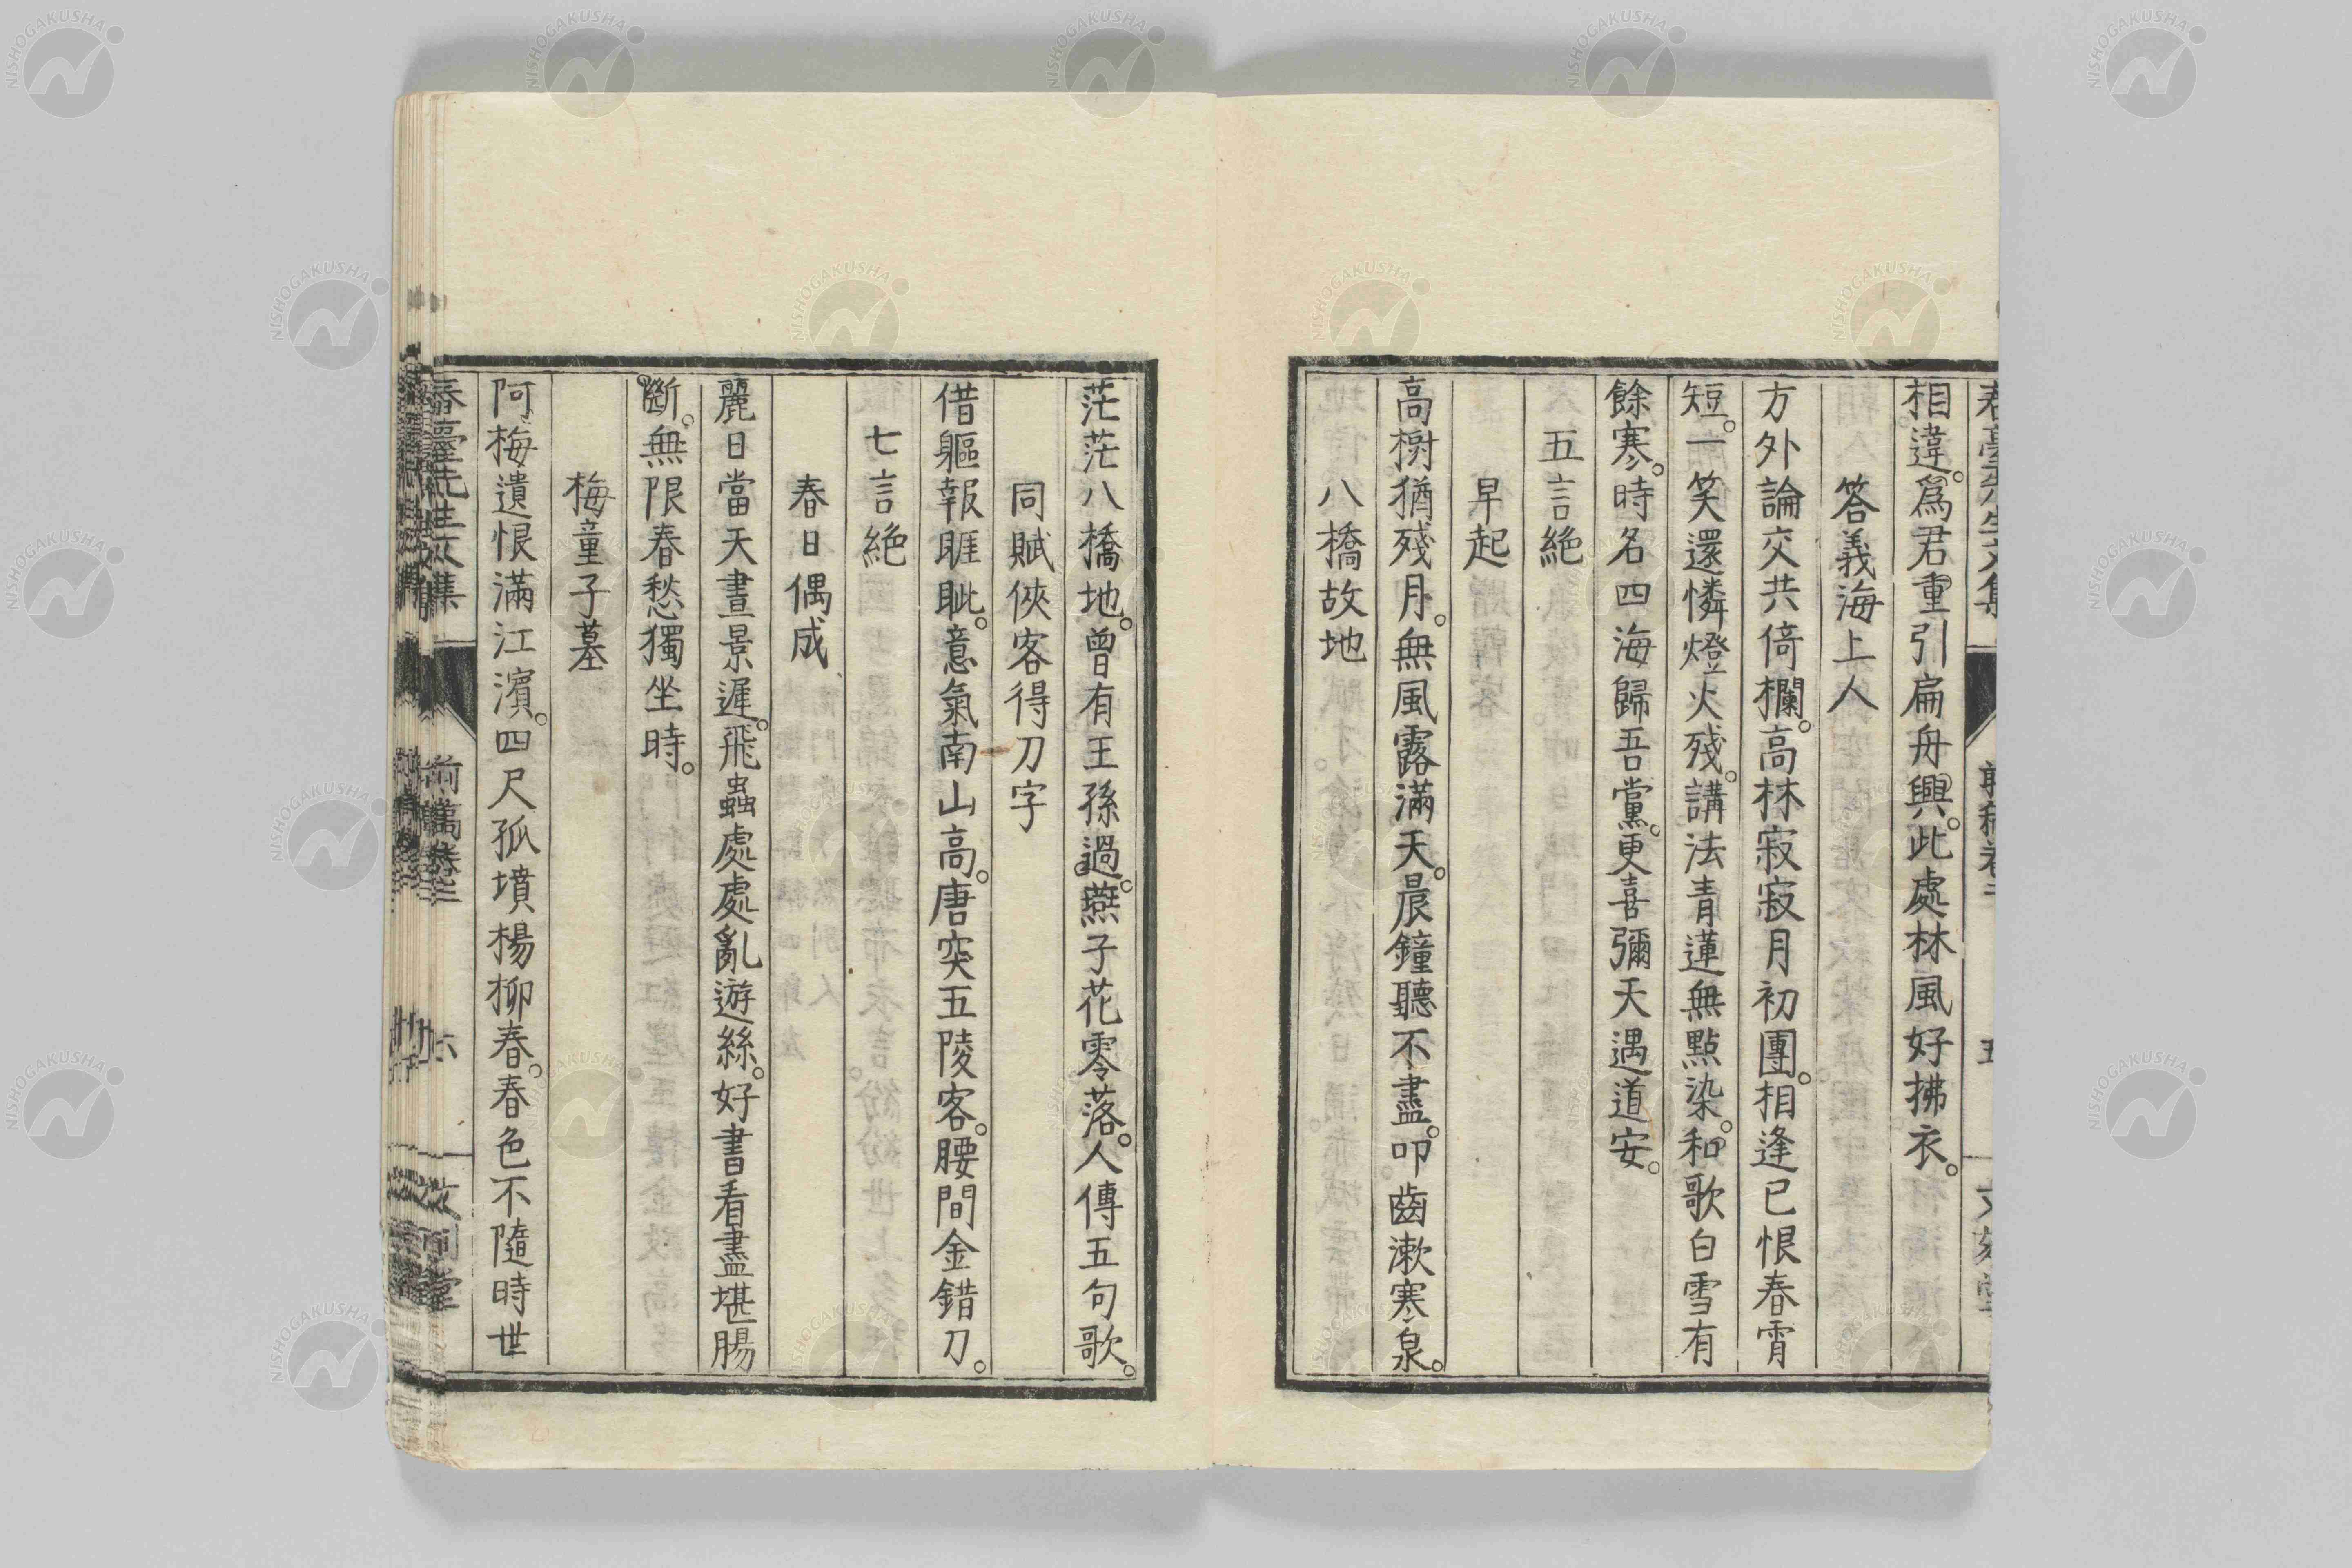 相違。爲君重引扁舟興。此處林風好拂衣。
答義海上人
方外論交共倚欄。高林寂寂月初團。相逢已恨春宵
短。一笑還憐燈火殘。講法青蓮無點染。和歌白雪有
餘寒。時名四海歸吾黨。更喜彌天遇道安。
五言絕
早起
高樹猶殘月。無風露滿天。晨鐘聽不盡。叩齒漱寒泉。
八橋故地
茫茫八橋地。曾有王孫過。燕子花零落。人傳五句歌。
同賦俠客得刀字
借軀報睚眦。意氣南山高。唐突五陵客。腰間金錯刀。
七言絕
春日偶成
麗日當天晝景遲。飛蟲處處亂遊絲。好書看盡堪腸
斷。無限春愁獨坐時。
梅童子墓
阿梅遺恨滿江濱。四尺孤墳楊柳春。春色不隨時世
NISHOGAKUSHA